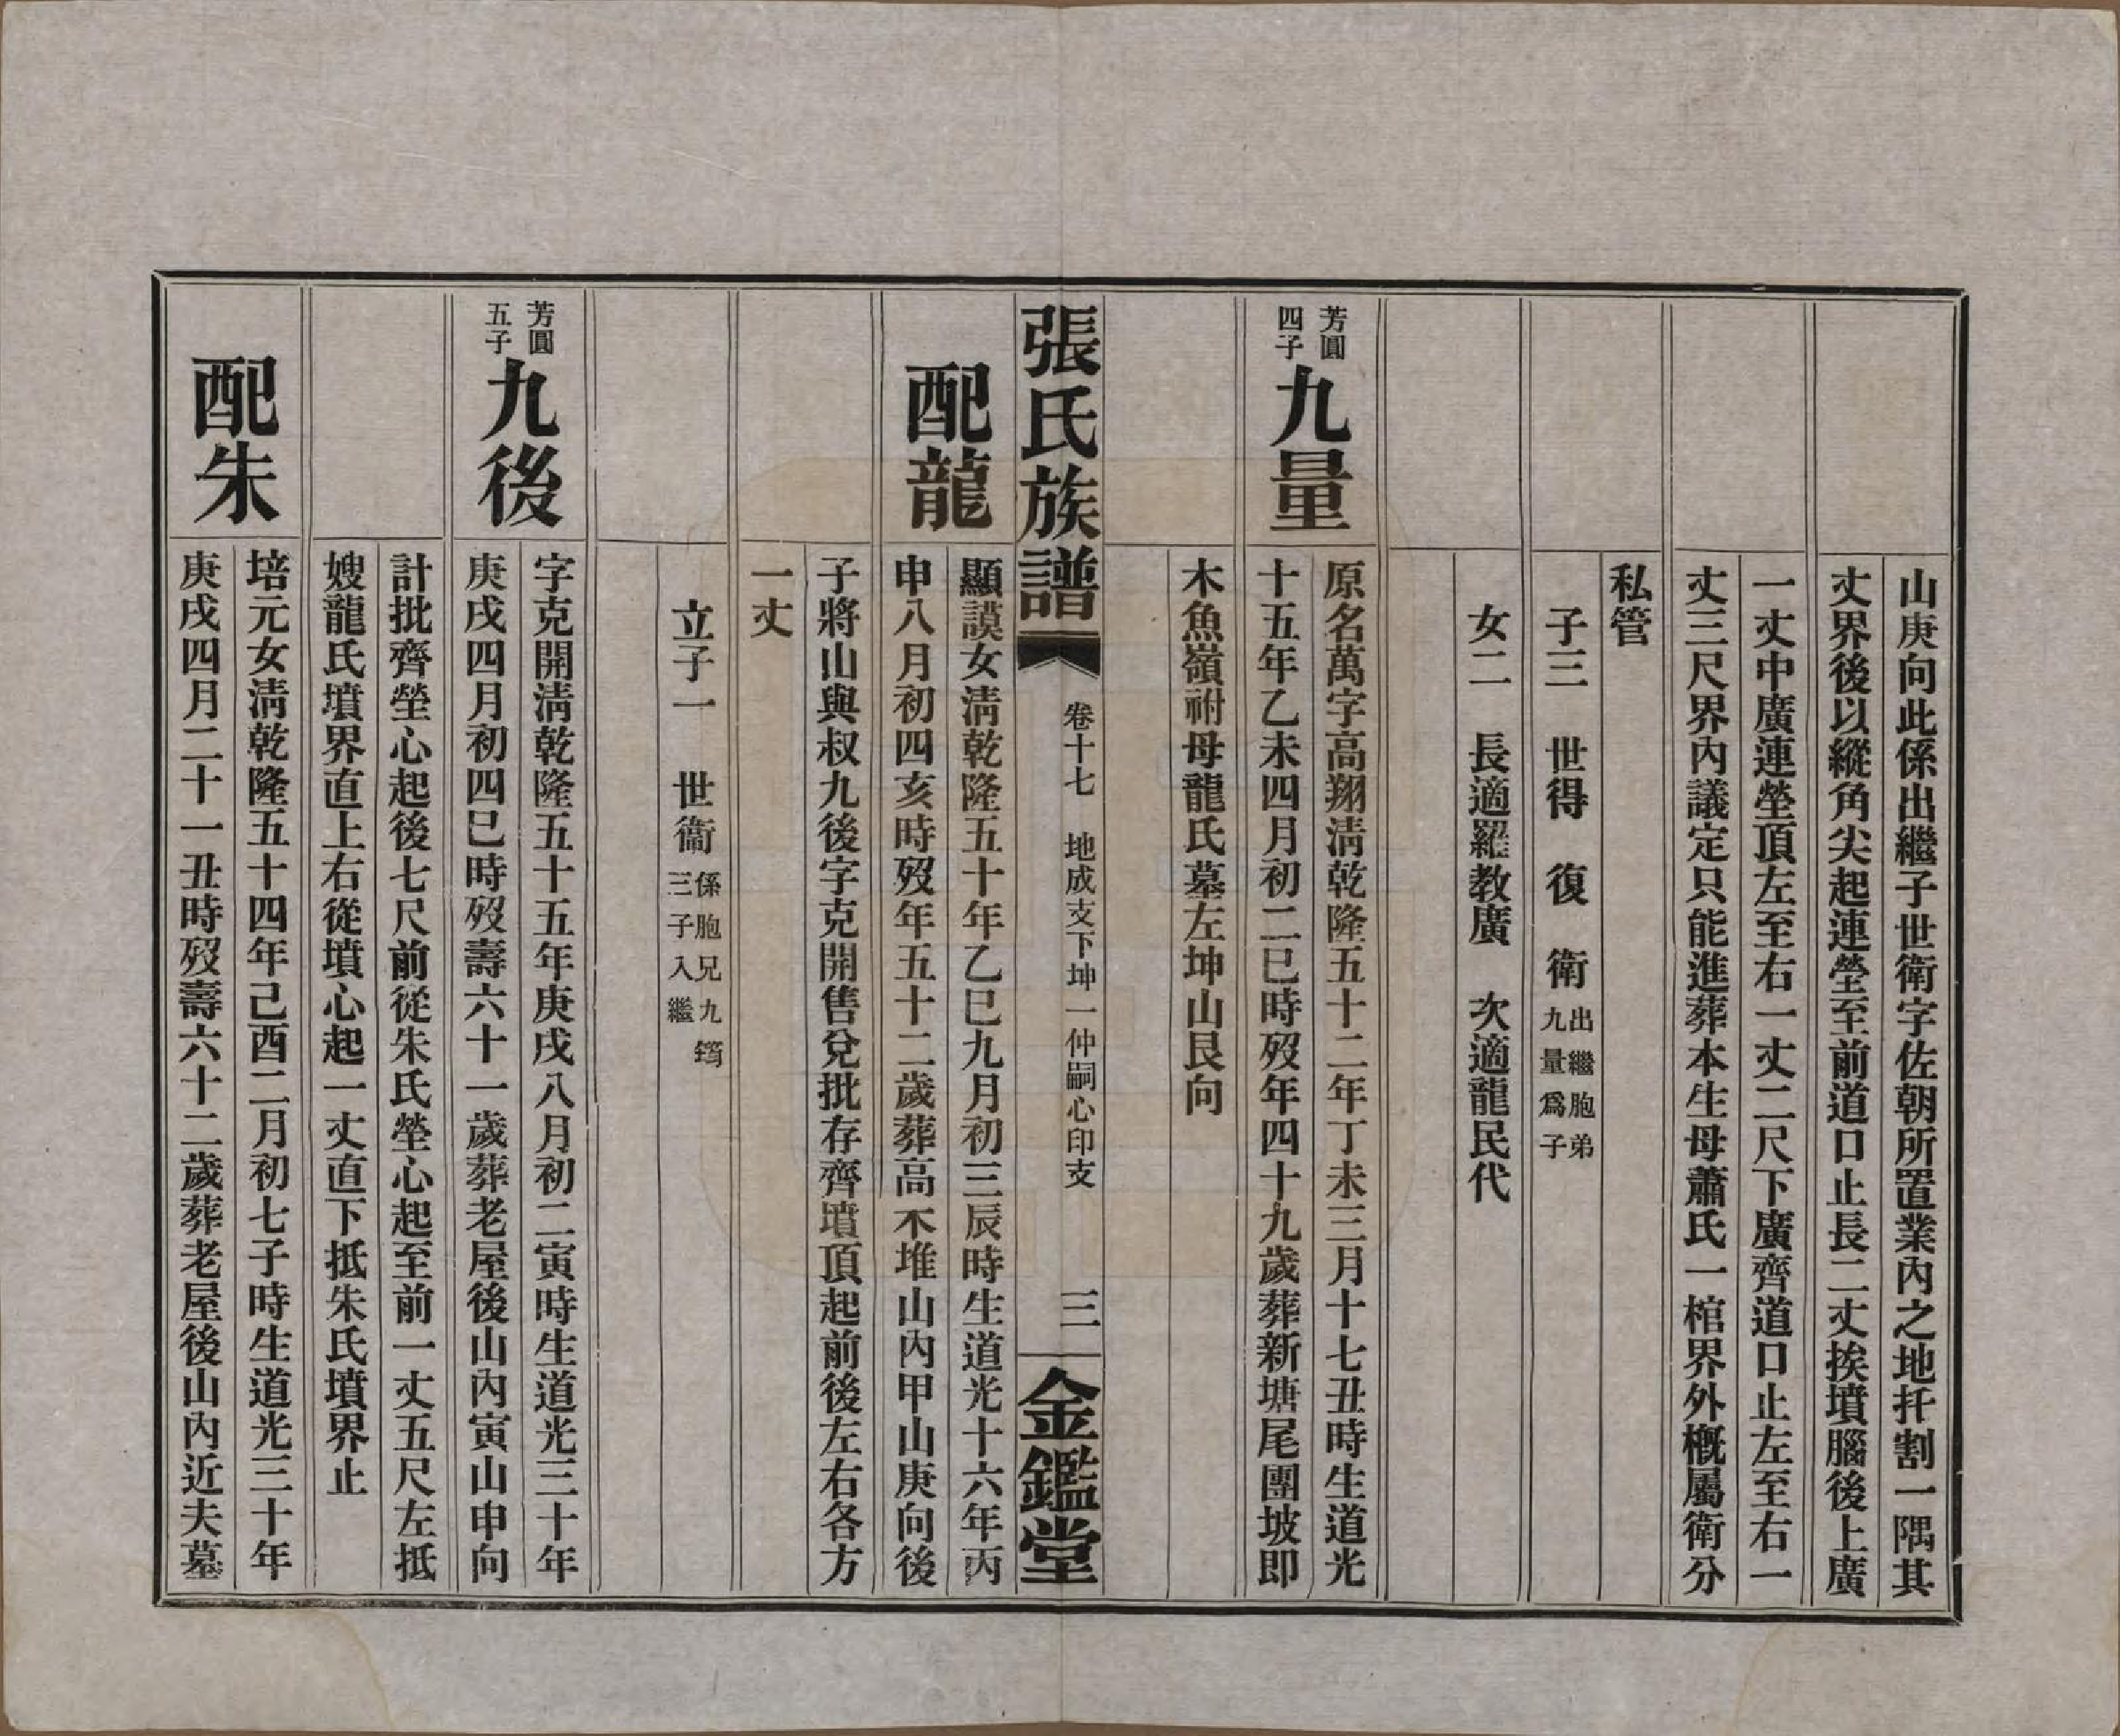 山庚向此係出繼子世衛字佐朝所置業內之地扦割一隅其
丈界後以縱角尖起連塋至前道口止長二丈挨墳腦後上廣
一丈中廣連塋頂左至右一丈二尺下廣齊道口止左至右一
丈三尺界內議定只能進葬本生母蕭氏一棺界外概屬衛分
私管
子三 世得 復 衛 出繼胞弟
九量為子
女二 長適羅教廣 次適龍民代
芳圓
四子
九量
原名萬字高翔清乾隆五十二年丁未三月十七丑時生道光
十五年乙未四月初二巳時歿年四十九歲葬新塘尾團坡即
木魚嶺祔母龍氏墓左坤山艮向
張氏族譜 卷十七 地成支下坤一仲嗣心印支 三 金鑑堂
配龍
顯謨女清乾隆五十年乙巳九月初三辰時生道光十六年丙
申八月初四亥時歿年五十二歲葬高不堆山內甲山庚向後
子將山與叔九後字克開售兌批存齊墳頂起前後左右各方
一丈
立子一 世衞 係胞兄九筠
三子入繼
芳圓
五子
九後
字克開清乾隆五十五年庚戌八月初二寅時生道光三十年
庚戌四月初四巳時歿壽六十一歲葬老屋後山內寅山申向
計批齊塋心起後七尺前從朱氏塋心起至前一丈五尺左抵
嫂龍氏墳界直上右從墳心起一丈直下抵朱氏墳界止
配朱
培元女清乾隆五十四年己酉二月初七子時生道光三十年
庚戌四月二十一丑時歿壽六十二歲葬老屋後山內近夫墓